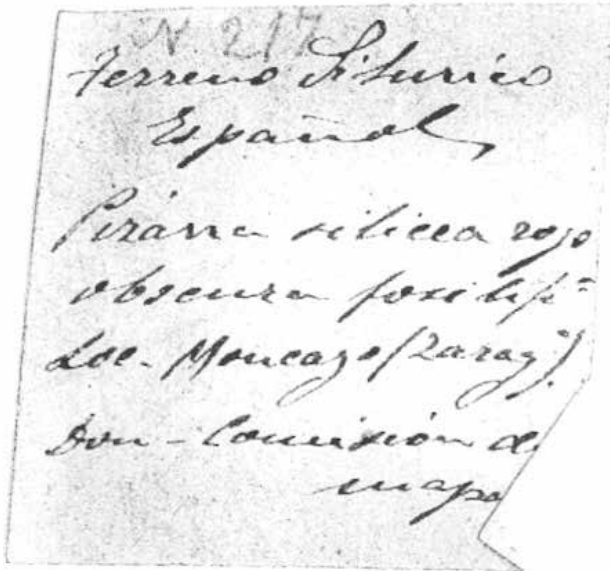 N. 217
Terreno Silurico
Español
Pizarra silicea rojo
obscura fosilifª
Loc. Moncayo (Zaragª).
Don - Comisión de
mapa